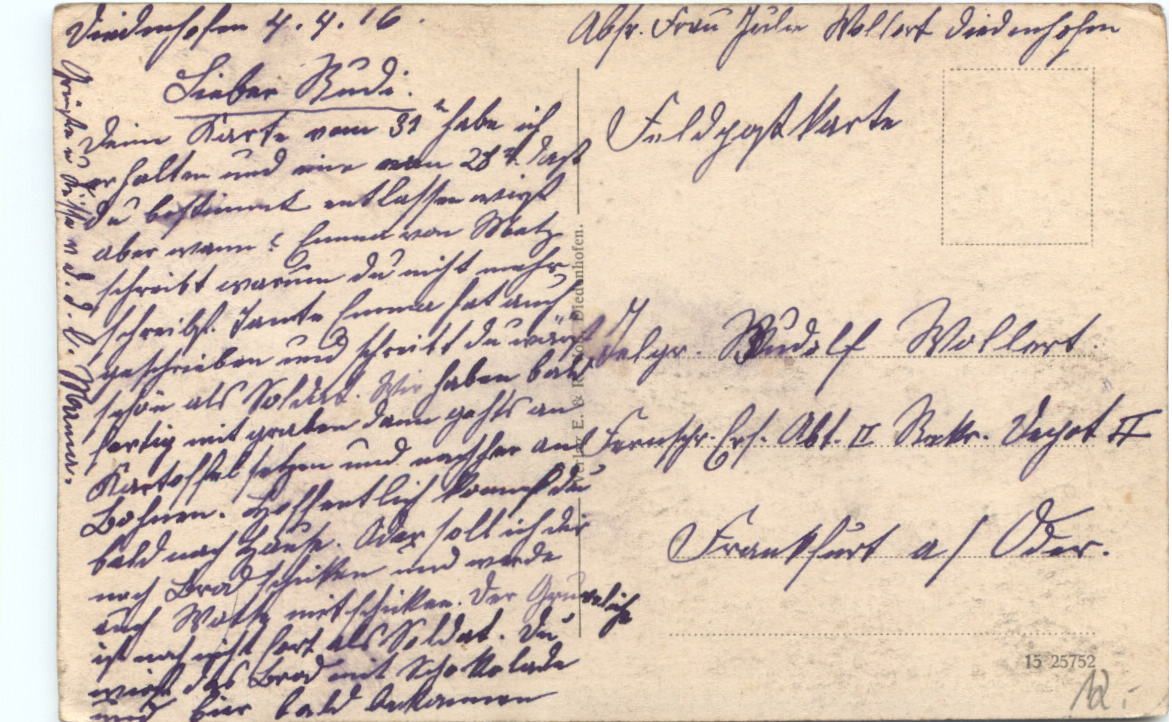 Diedenhofen 4.4.16.
Lieber Rudi.
Deine Karte vom 31ᵗ habe ich
erhalten und eine vom 28ᵗ. daß
du bestimmt entlassen wirst
aber wann? Emma von Metz
schreibt warum du nicht mehr
schreibst. Tante Emma hat auch
geschrieben und schreibt du wärst
schön als Soldat. Wir haben bald
fertig mit graben dann gehts an
Kartoffel setzen und nachher an
Bohnen. Hoffentlich kommst du
bald nach Hause. Oder soll ich dir
noch Brod schicken und werde
auch mitschicken. Der
ist noch nicht fort als Soldat. Du
wirst das Brod mit Schokolade
und hier bald bekommen
Grüße u Küsse v. d. d. l. Mama.
Abs. Frau Julie Wollert Diedenhofen
Feldpostkarte
Telgr. Rudolf Wollert.
Fernspr. Ers. Abt. II Rekr. Depot II
Frankfurt a/ Oder.
Verlag E. & Diedenhofen.
15 25752
12.-